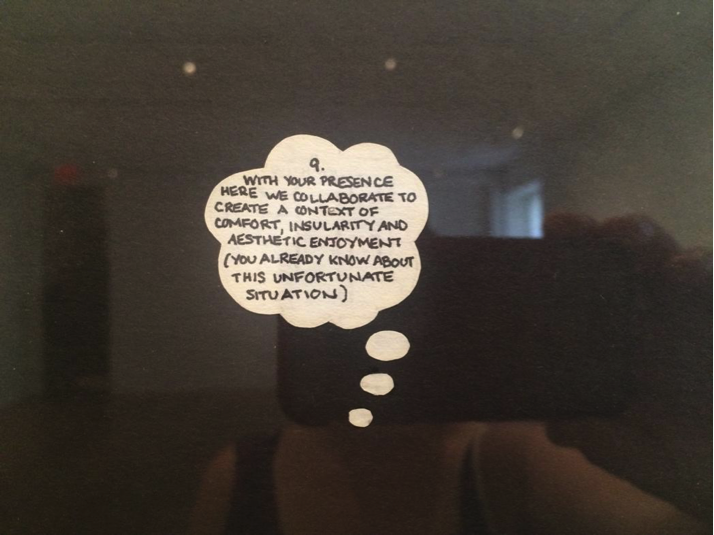 9.
WITH YOUR PRESENCE
HERE WE COLLABORATE TO
CREATE A CONTEXT OF
COMFORT, INSULARITY AND
AESTHETIC ENJOYMENT
(YOU ALREADY KNOW ABOUT
THIS UNFORTUNATE
SITUATION)